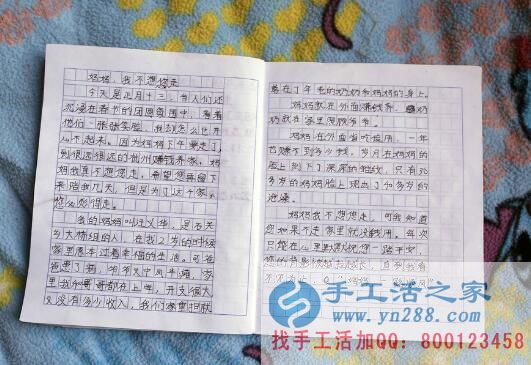 妈妈，我不想您走
今天是正月十三，当人们还
沉浸在春节的团圆氛围中，看着
他们一张张笑脸，我却怎么也开
心不起来。因为妈妈下午要走了，
到很远很远的 州赚钱养家，妈
妈我里不想您走。希望您再留下
来陪我几天，但是为了这个家
您必须得走。
我的妈妈叫汪义华，是石关
乡大桥组的人，在我2岁的时候
家里原本过着幸福的生活，可爸
爸患了 ，有 又中风半瘫，家
里我和 哥都在上学，开支很大
又没有多少收入，我们家重担就
落在了年老的奶奶和妈妈的身上。
妈妈就在外面赚钱养家，奶奶
就在家里照顾爷爷。
妈妈在外面省吃俭用，一年
也赚不到多少钱，岁月在妈妈的
脸上刻下了深深的皱纹，只有30
多岁的妈妈脸上现出了40多岁的
沧桑。
妈妈我不想您走，可我知道
您如果不走家里就没钱用。每次
只能在心里默默祝您一路平安，
您的背影 越走越长，直到我看
不见为止
手工活之家
www.yn288.com
找手工活加QQ：800123458